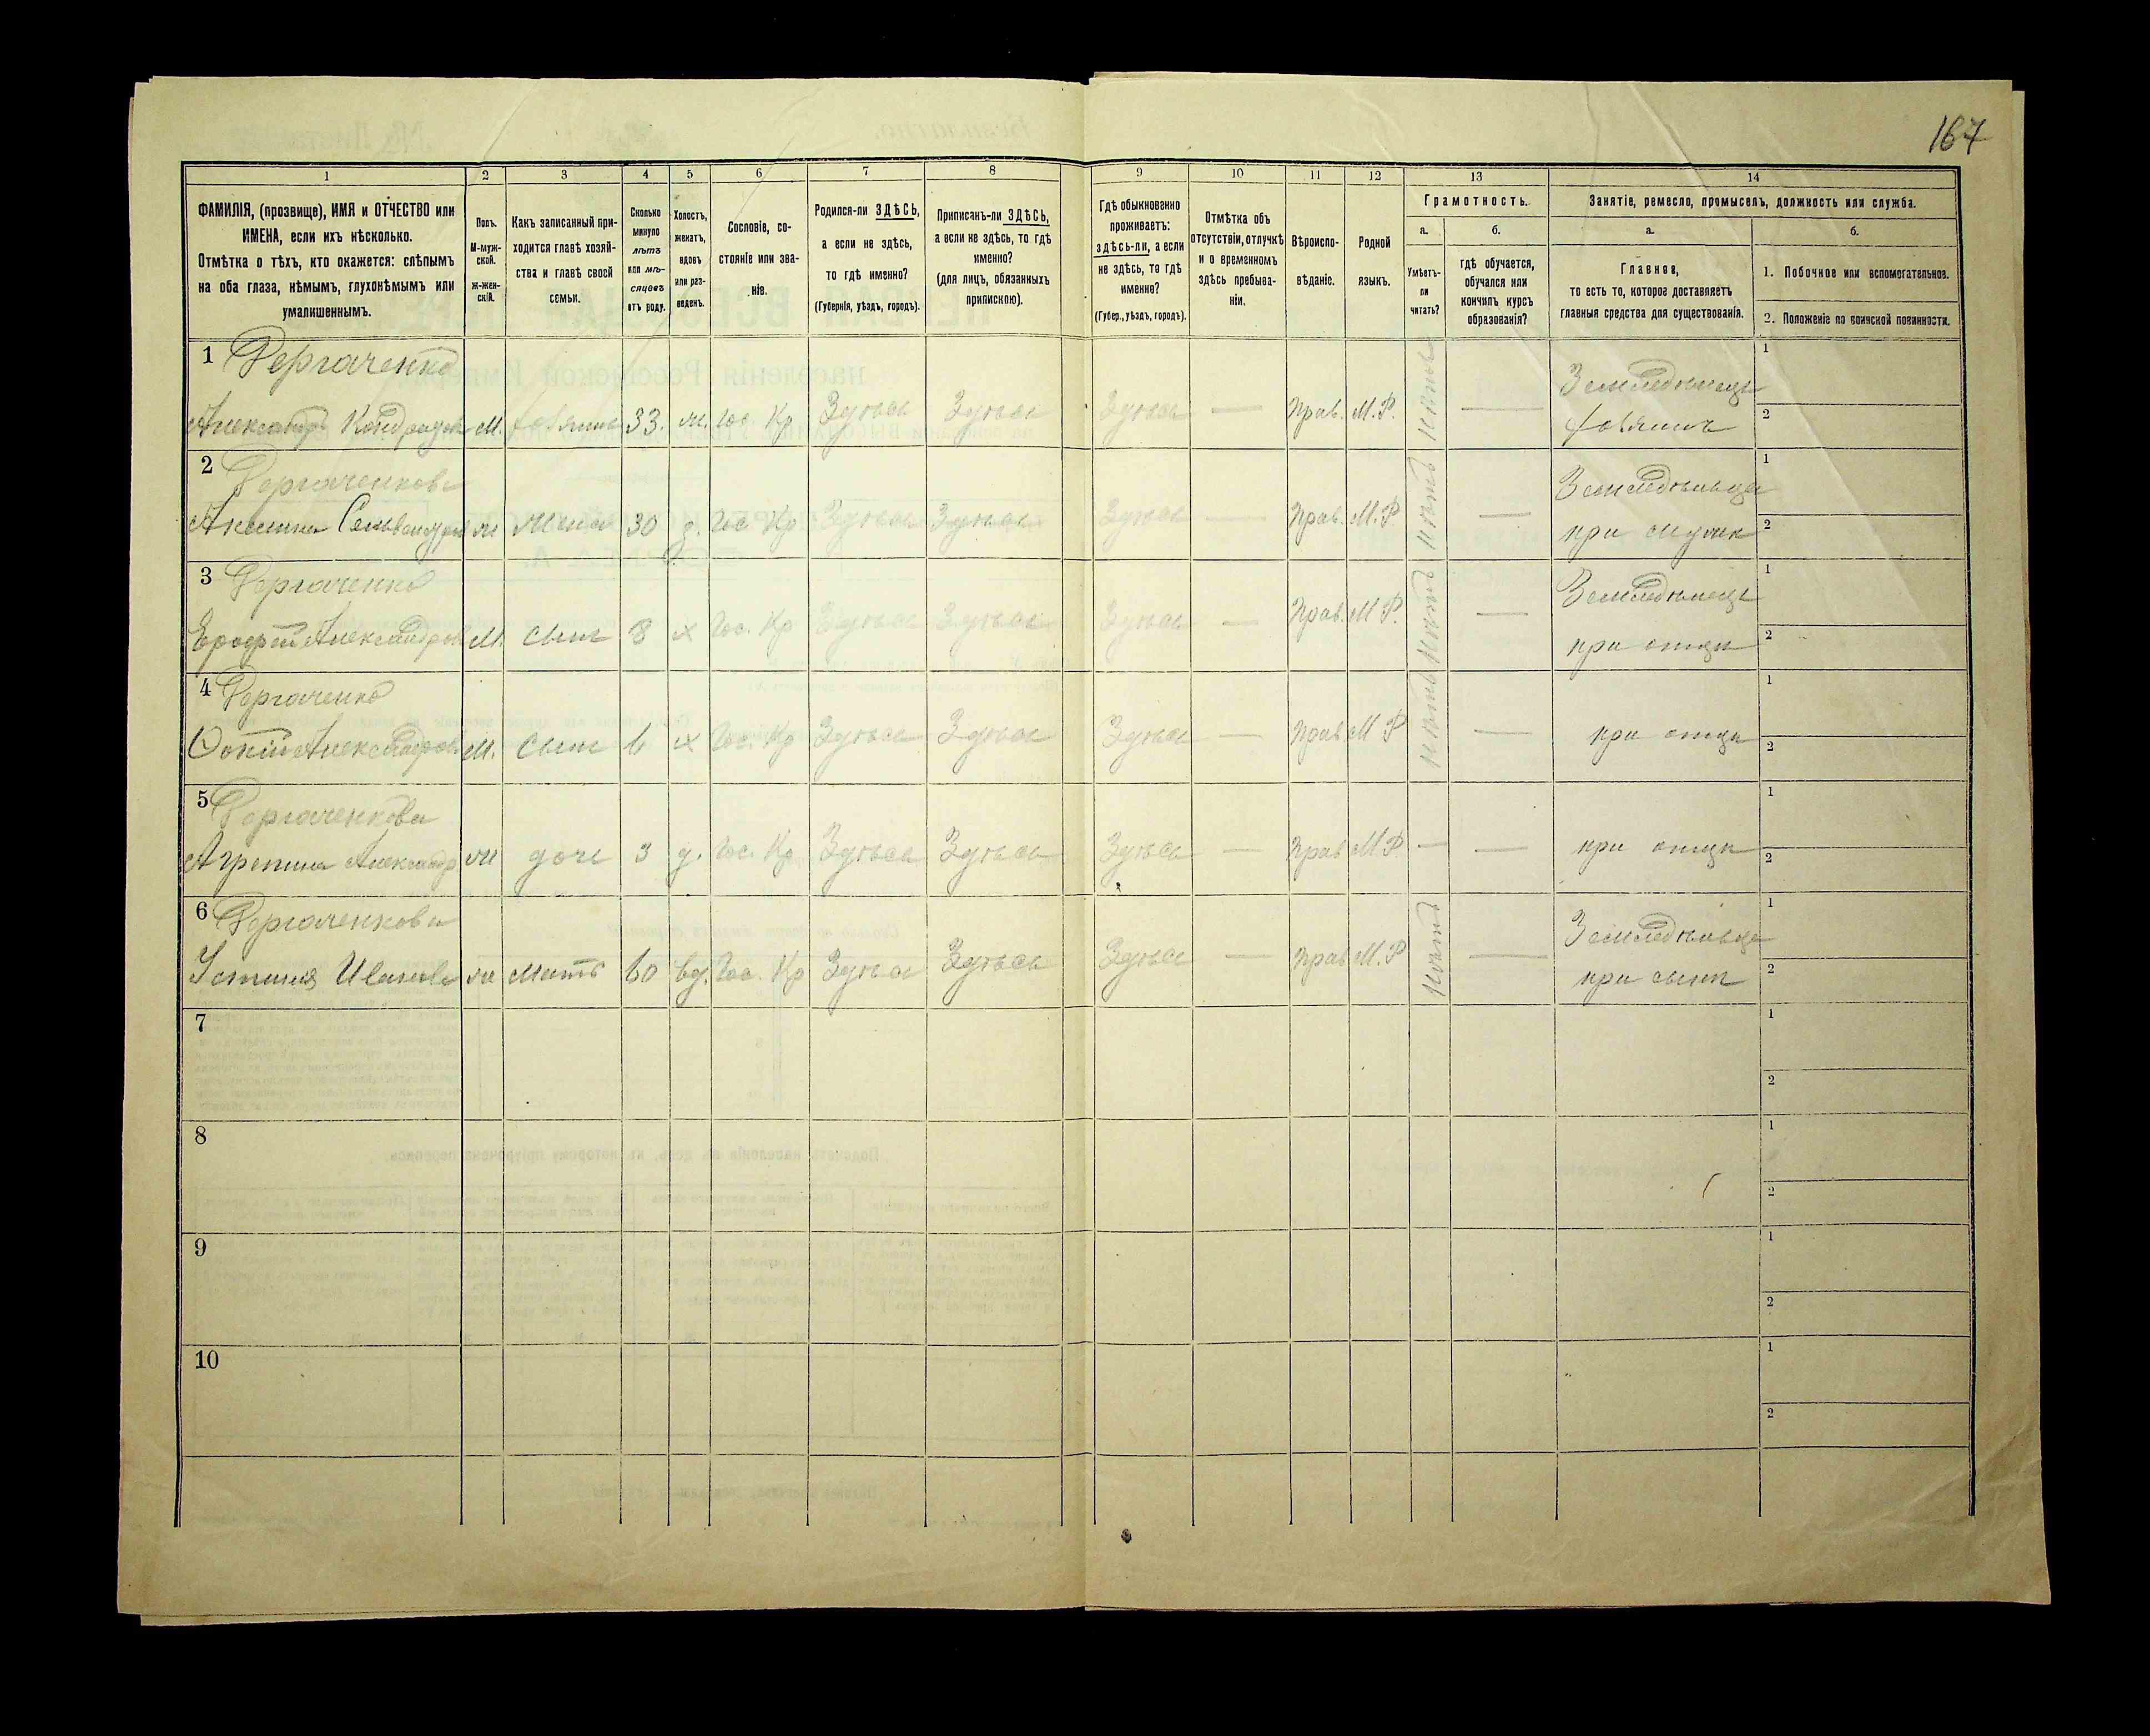 167
1 2 3 4 5 6 7 8 9 10 11 12 13 14
ФАМИЛІЯ, (прозвище), ИМЯ и ОТЧЕСТВО или
ИМЕНА, если ихъ нѣсколько.
Отмѣтка о тѣхъ, кто окажется: слѣпымъ
на оба глаза, нѣмымъ, глухонѣмымъ или
умалишеннымъ.
Полъ.
М-муж-
ской.
Ж-жен-
скій.
Какъ записанный при-
ходится главѣ хозяй-
ства и главѣ своей
семьи.
Сколько
минуло
лѣтъ
или мѣ-
сяцовъ
отъ роду.
Холостъ,
женатъ,
вдовъ
или раз-
веденъ.
Сословіе, со-
стояніе или зва-
ніе.
Родился-ли ЗДѢСЬ,
а если не здѣсь,
то гдѣ именно?
(Губернія, уѣздъ, городъ).
Приписанъ-ли ЗДѢСЬ,
а если не здѣсь, то гдѣ
именно?
(для лицъ, обязанныхъ
припискою).
Гдѣ обыкновенно
проживаетъ:
здѣсь-ли, а если
не здѣсь, то гдѣ
именно?
(Губер., уѣздъ, городъ).
Отмѣтка объ
отсутствіи, отлучкѣ
и о временномъ
здѣсь пребыва-
ніи.
Вѣроиспо-
вѣданіе.
Родной
языкъ.
Грамотность.
а.
Умѣетъ-
ли
читать?
б.
гдѣ обучается,
обучался или
кончилъ курсъ
образованія?
Занятіе, ремесло, промыселъ, должность или служба.
а.
Главное,
то есть то, которое доставляетъ
главныя средства для существованія.
б.
1. Побочное или вспомогательное.
2. Положеніе по воинской повинности.
1 Дергаченко Земледѣлецъ 1
Александръ М. хозяинъ 33. ж. Гос. Кр Здѣсь Здѣсь Здѣсь — Прав. М.Р. нѣтъ — хозяинъ 2
2 Дергаченкова 1
Акелина ж жена 30 з. Гос. Кр Здѣсь Здѣсь Здѣсь — Прав. М.Р нѣтъ — при мужѣ 2
3 Дергаченко Земледѣлецъ 1
Ерофей Александров М. сынъ 8 х Гос. Кр Здѣсь Здѣсь Здѣсь — Прав. М Р. нѣтъ — при отцѣ 2
4 Дергаченко 1
Александров М. сынъ 6 х Гос. Кр Здѣсь Здѣсь Здѣсь — Прав М Р нѣтъ — при отцѣ 2
5 Дергаченкова 1
Агрепина Александр ж дочь 3 д. Гос. Кр Здѣсь Здѣсь Здѣсь — Прав М Р — — при отцѣ 2
6 Дергаченкова 1
Устинія Иванова ж мать 60 вд. Гос. Кр Здѣсь Здѣсь Здѣсь — Прав М.Р нѣтъ — при сынѣ 2
7 1
2
8 1
2
9 1
2
10 1
2